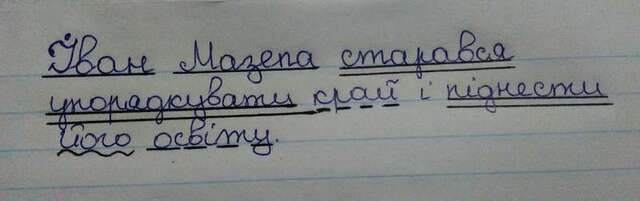 Іван Мазепа старався
упорядкувати край і піднести
його освіту.